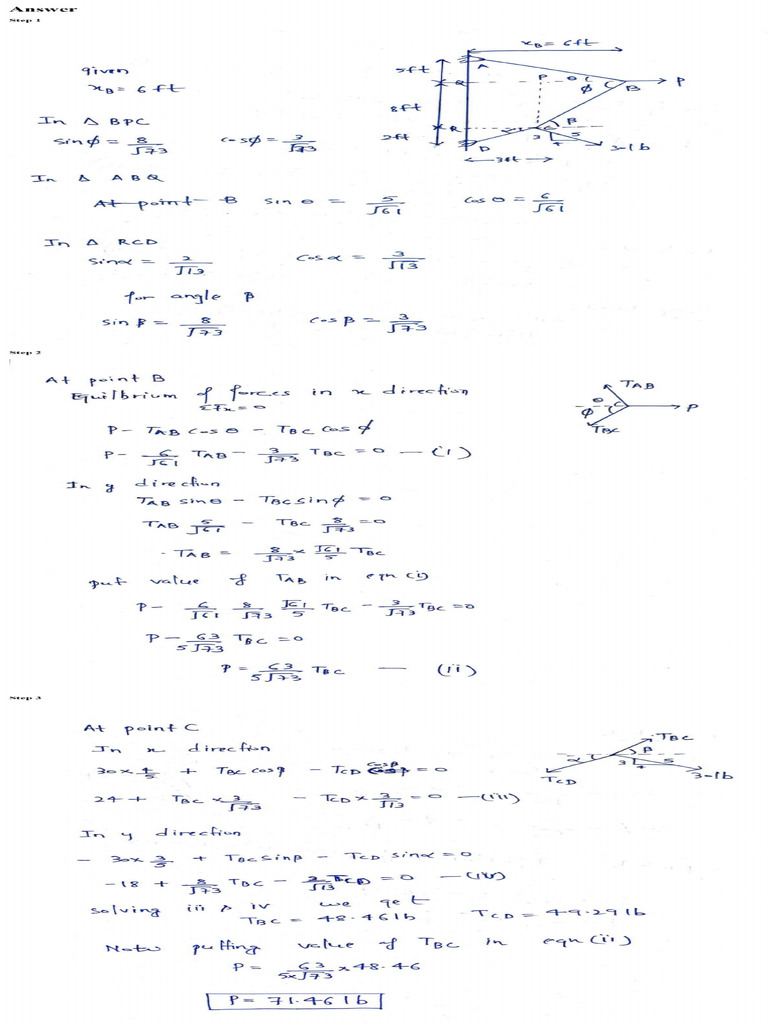 Answer
Step 1
given
xB = 6 ft
In Δ BPC
sinϕ = 8/√73 cosϕ = 3/√73
In Δ ABQ
At point B sinθ = 5/√61 cosθ = 6/√61
In Δ RCD
sinα = 2/√13 cosα = 3/√13
for angle β
sinβ = 8/√73 cosβ = 3/√73
xB = 6ft
5ft
8ft
2ft
A
Q
P
θ
ϕ
B
P
R
α
C
β
D
3
4
5
3-lb
3ft
Step 2
At point B
Equilbrium of forces in x direction
ΣFx = 0
P - TAB cosθ - TBC cosϕ
P - 6/√61 TAB - 3/√73 TBC = 0 — (i)
In y direction
TAB sinθ - TBC sinϕ = 0
TAB 5/√61 - TBC 8/√73 = 0
TAB = 8/√73 × √61/5 TBC
put value of TAB in eqn (i)
P - 6/√61 8/√73 √61/5 TBC - 3/√73 TBC = 0
P - 63/5√73 TBC = 0
P = 63/5√73 TBC — (ii)
TAB
θ
ϕ
P
TBC
Step 3
At point C
In x direction
30×4/5 + TBC cosβ - TCD cosβ = 0
24 + TBC × 3/√73 - TCD × 3/√13 = 0 — (iii)
In y direction
- 30×3/5 + TBC sinβ - TCD sinα = 0
-18 + 8/√73 TBC - 2/√13 TCD = 0 — (iv)
solving iii & iv we get
TBC = 48.46 lb TCD = 49.29 lb
Now putting value of TBC in eqn (ii)
P = 63/5×√73 × 48.46
P = 71.46 lb
TBC
α
β
3
4
5
TCD
3-lb